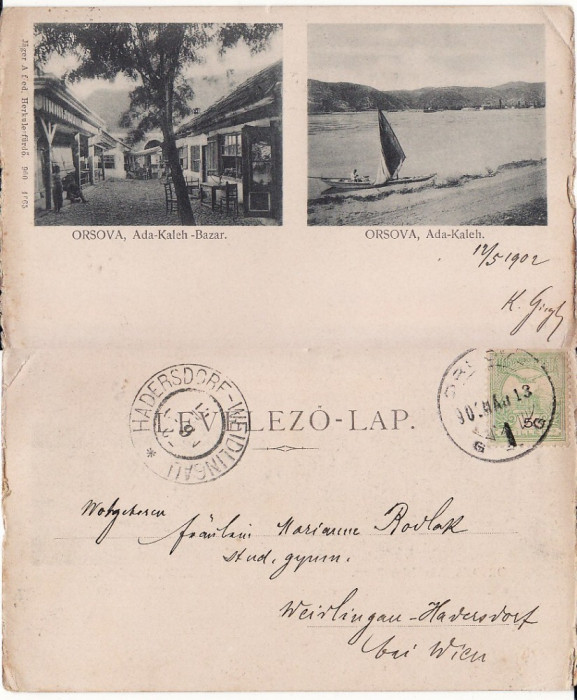 Jäger A f ed. Herkulesfürdő. 900 1765
ORSOVA, Ada-Kaleh -Bazar.
ORSOVA, Ada-Kaleh.
12/5 1902
K.
HADERSDORF-WEIDLINGAU *
LEVELEZŐ-LAP.
ORSOVA
902 MAJ 13
1
5
Fräulein Marianne Rodlak
stud. gymn.
Weidlingau-Hadersdorf
bei Wien